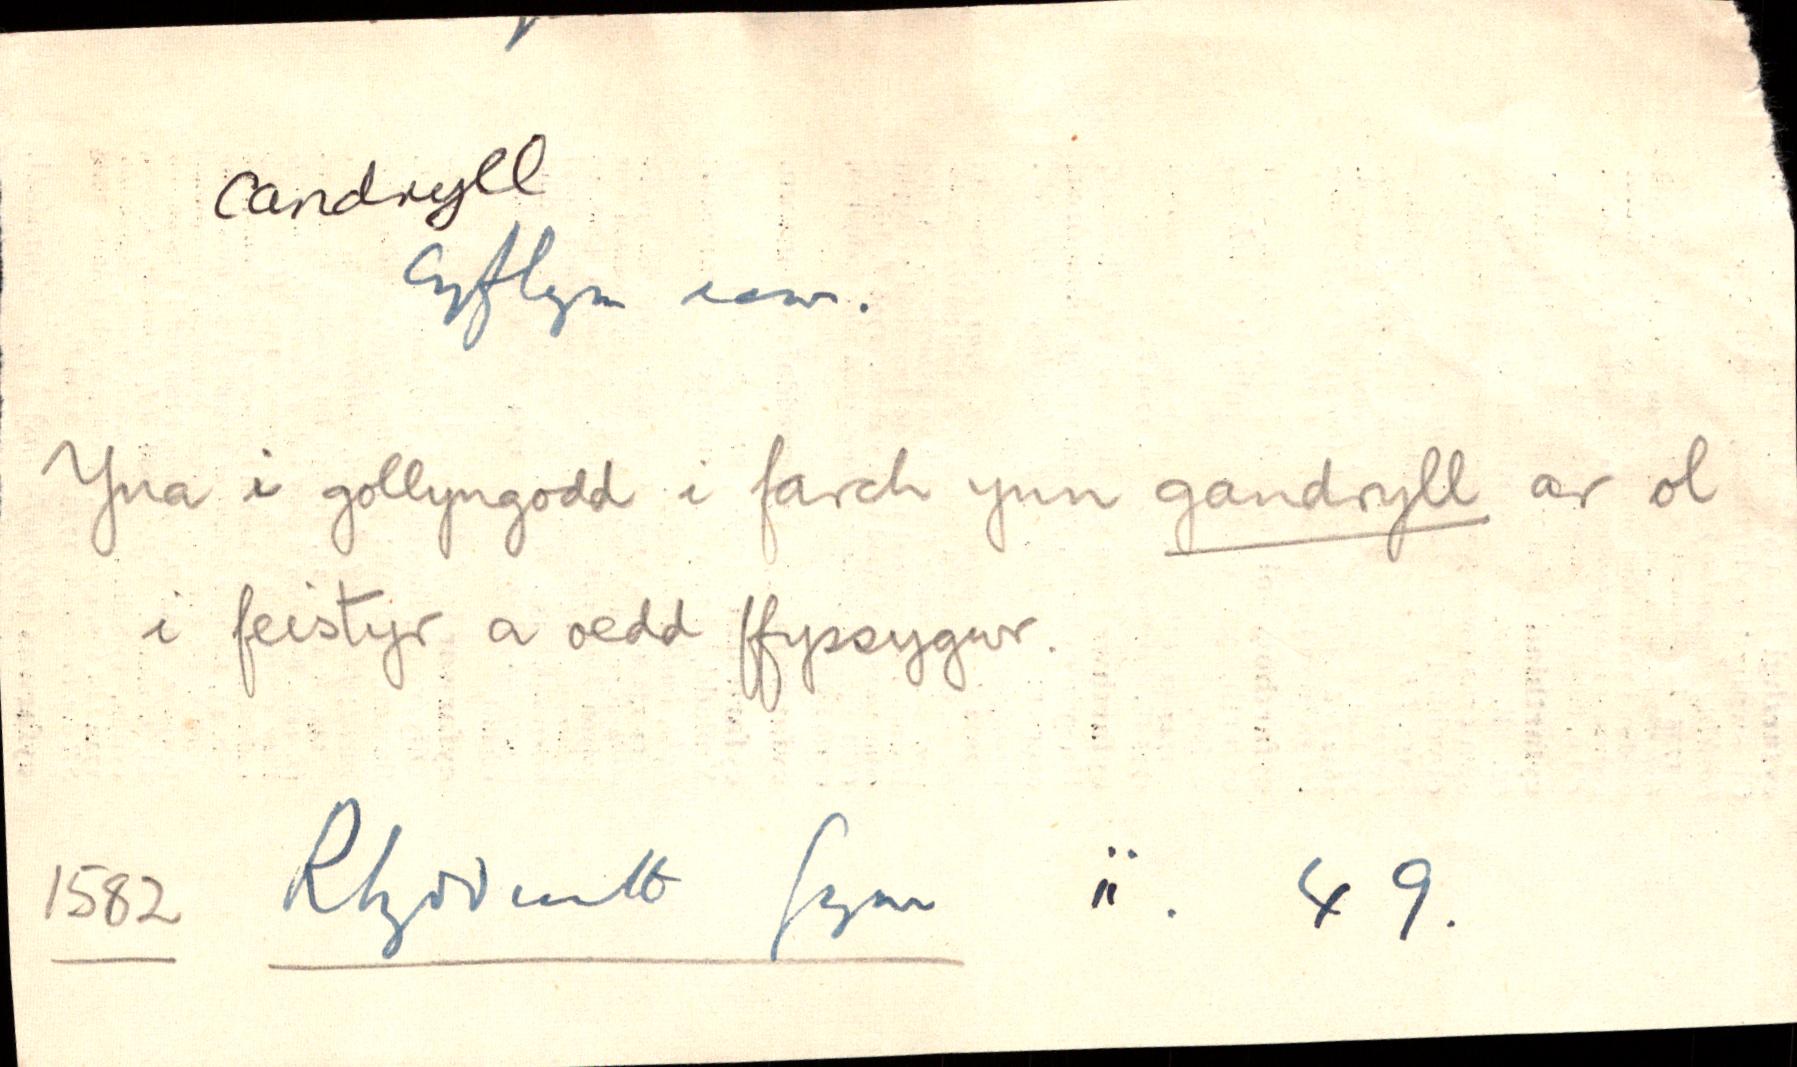 candryll
cyflym iawn.
Yna i gollyngodd i farch ynn gandryll ar ol
i feistyr a oedd ffyssygwr.
1582 Rhyddiaith Gym ii. 49.